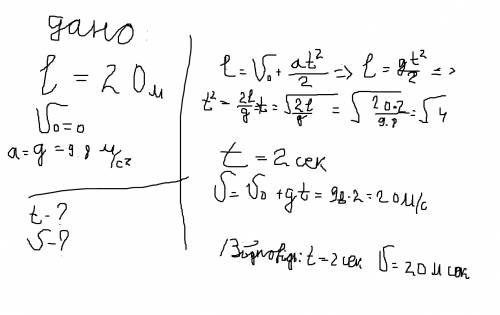 дано:
l = 20 м
V₀=0
a=g=9.8 м/с²
t-?
V-?
l=V₀+at²/2=>l=gt²/2=>
t²-2l/g t=√2l/g=√20·2/9.8=√4
t=2сек
V=V₀+gt=9,8·2=20м/с
Відповідь: t=2сек V=20м сек